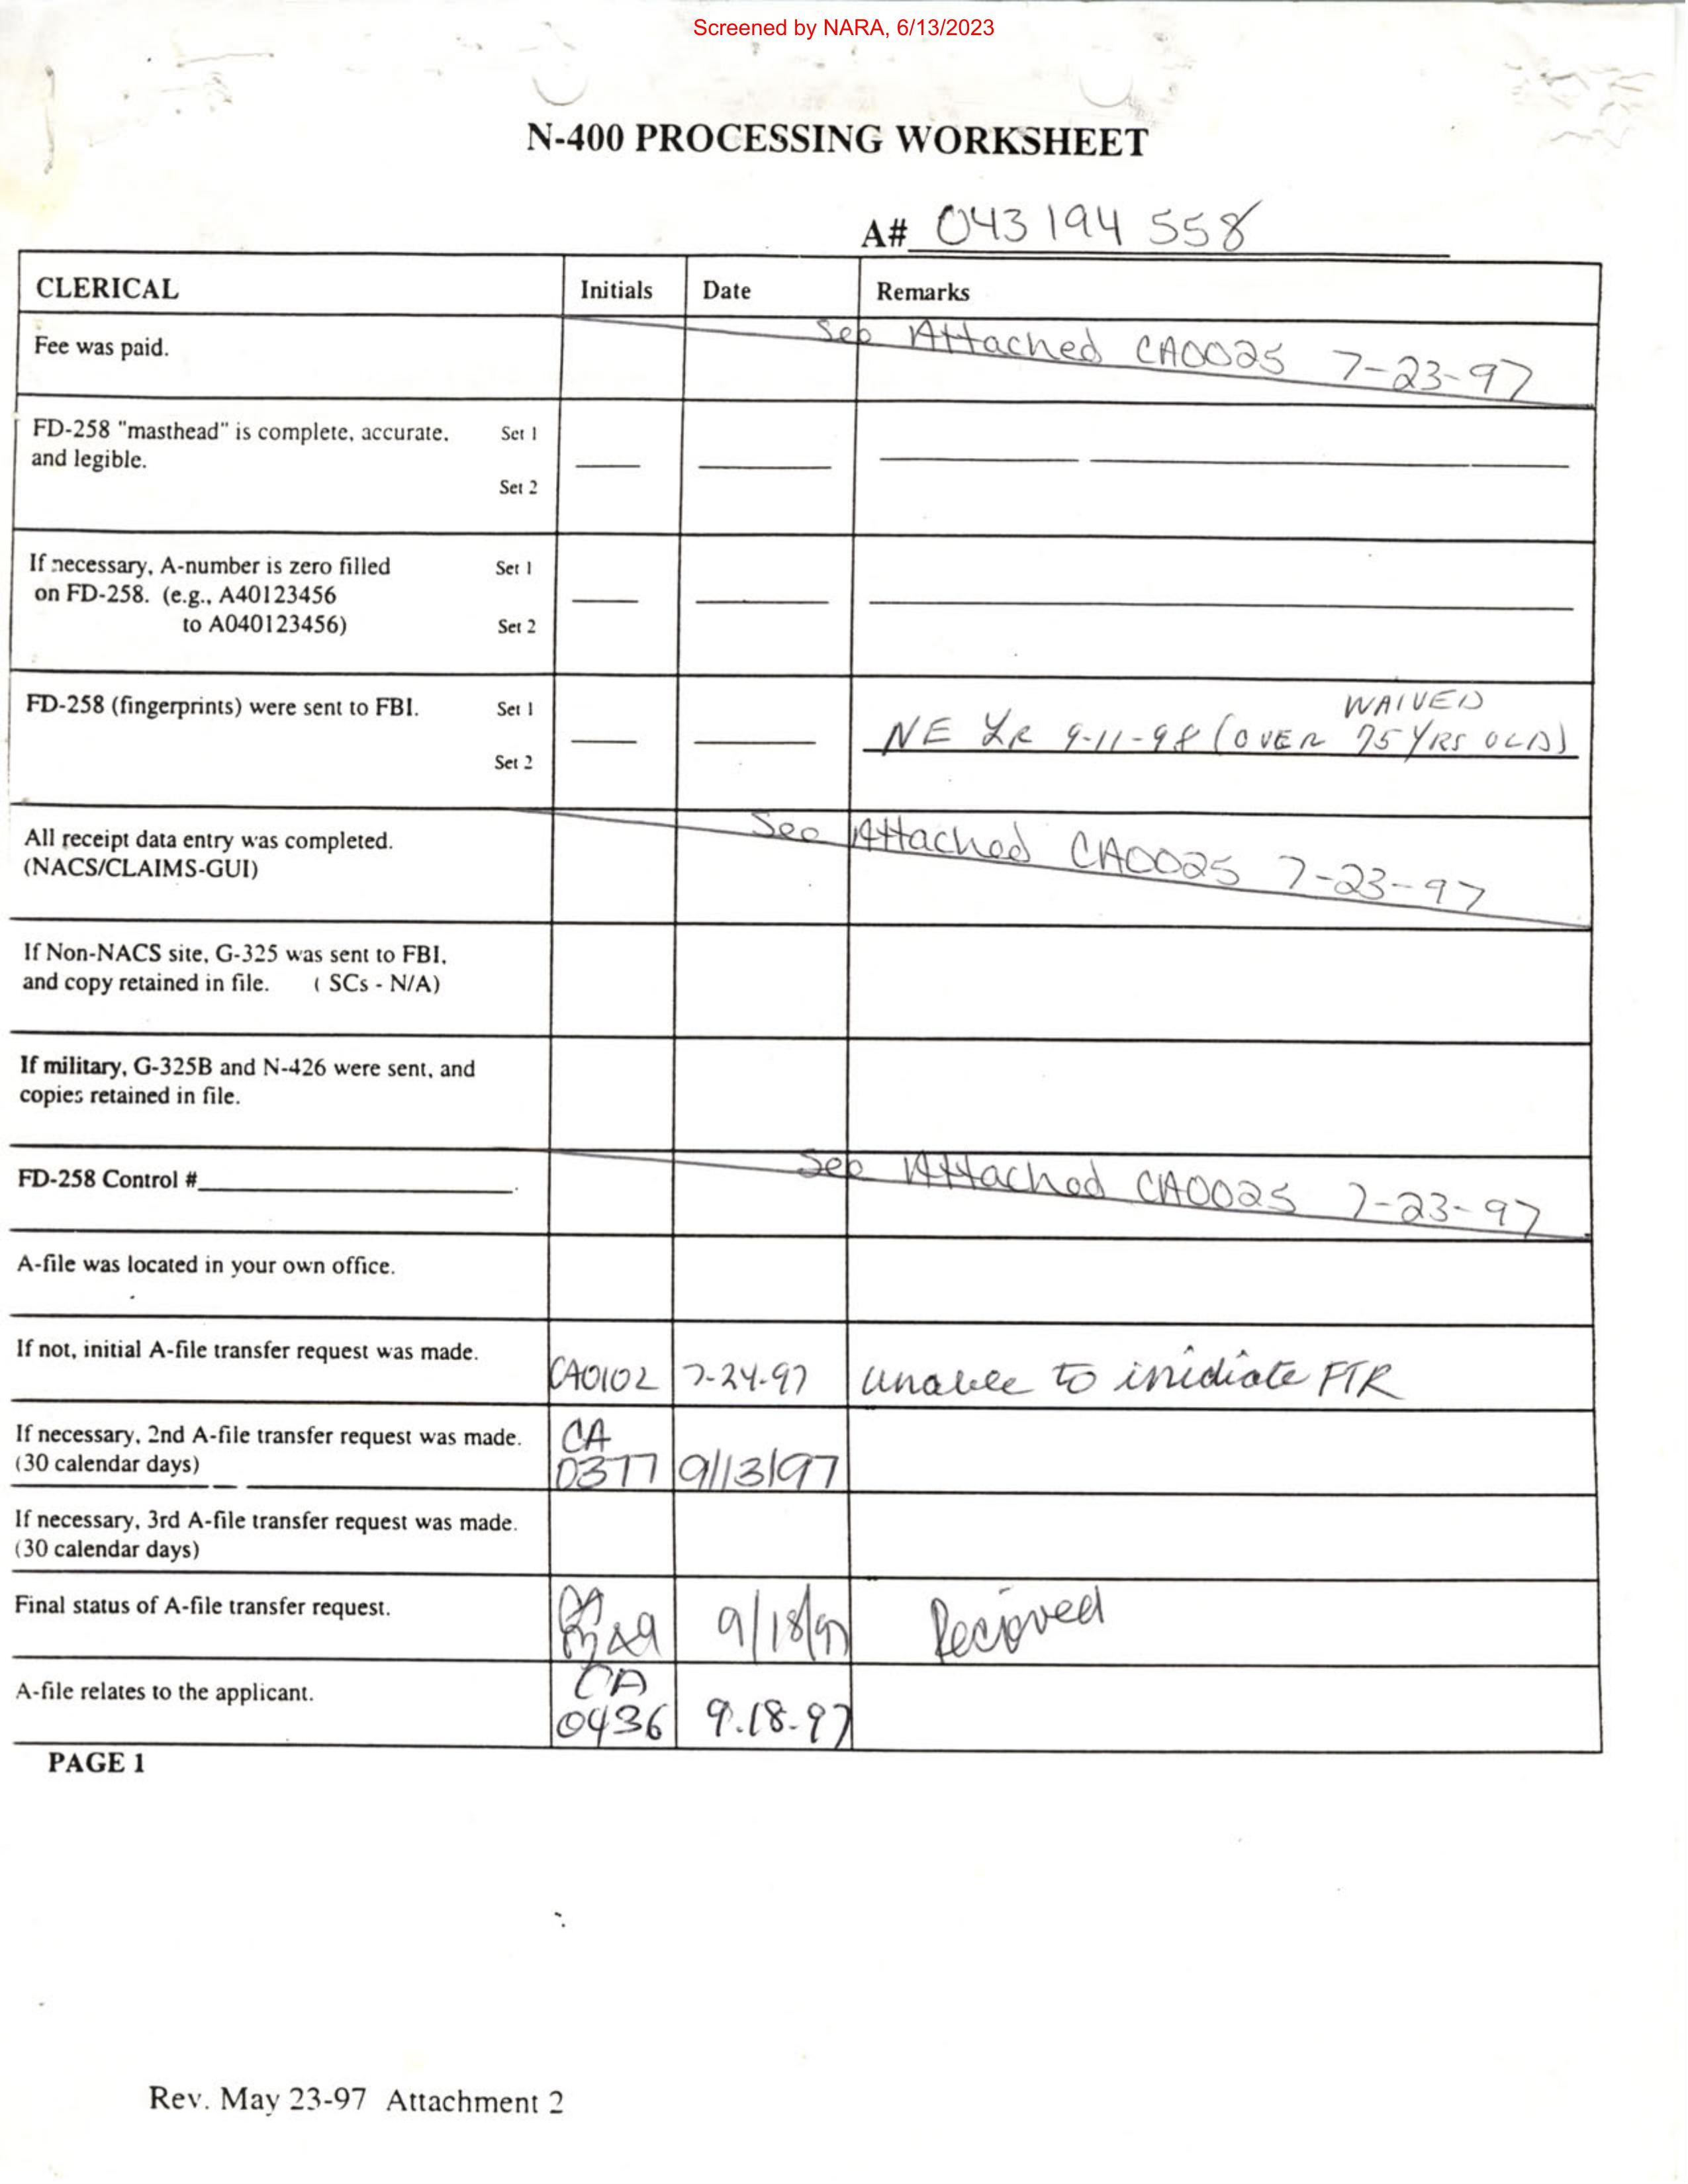 Screened by NARA, 6/13/2023
N-400 PROCESSING WORKSHEET
A# 043 194 558
CLERICAL Initials Date Remarks
Fee was paid. See Attached CA0025 7-23-97
FD-258 "masthead" is complete, accurate, Set 1
and legible.
Set 2
If necessary, A-number is zero filled Set 1
on FD-258. (e.g., A40123456
to A040123456) Set 2
WAIVED
FD-258 (fingerprints) were sent to FBI. Set 1
NE 9-11-98 (OVER 75 YRS OLD)
Set 2
See Attached CA0025 7-23-97
All receipt data entry was completed.
(NACS/CLAIMS-GUI)
If Non-NACS site, G-325 was sent to FBI,
and copy retained in file. ( SCs - N/A)
If military, G-325B and N-426 were sent, and
copies retained in file.
FD-258 Control # See Attached CA0025 7-23-97
A-file was located in your own office.
If not, initial A-file transfer request was made. CA0102 7-24-97 unable to inidiate FTR
If necessary, 2nd A-file transfer request was made. CA
(30 calendar days) 0377 9/13/97
If necessary, 3rd A-file transfer request was made.
(30 calendar days)
Final status of A-file transfer request. 9/18/97 Recieved
A-file relates to the applicant. CA
0436 9.18.97
PAGE 1
Rev. May 23-97 Attachment 2